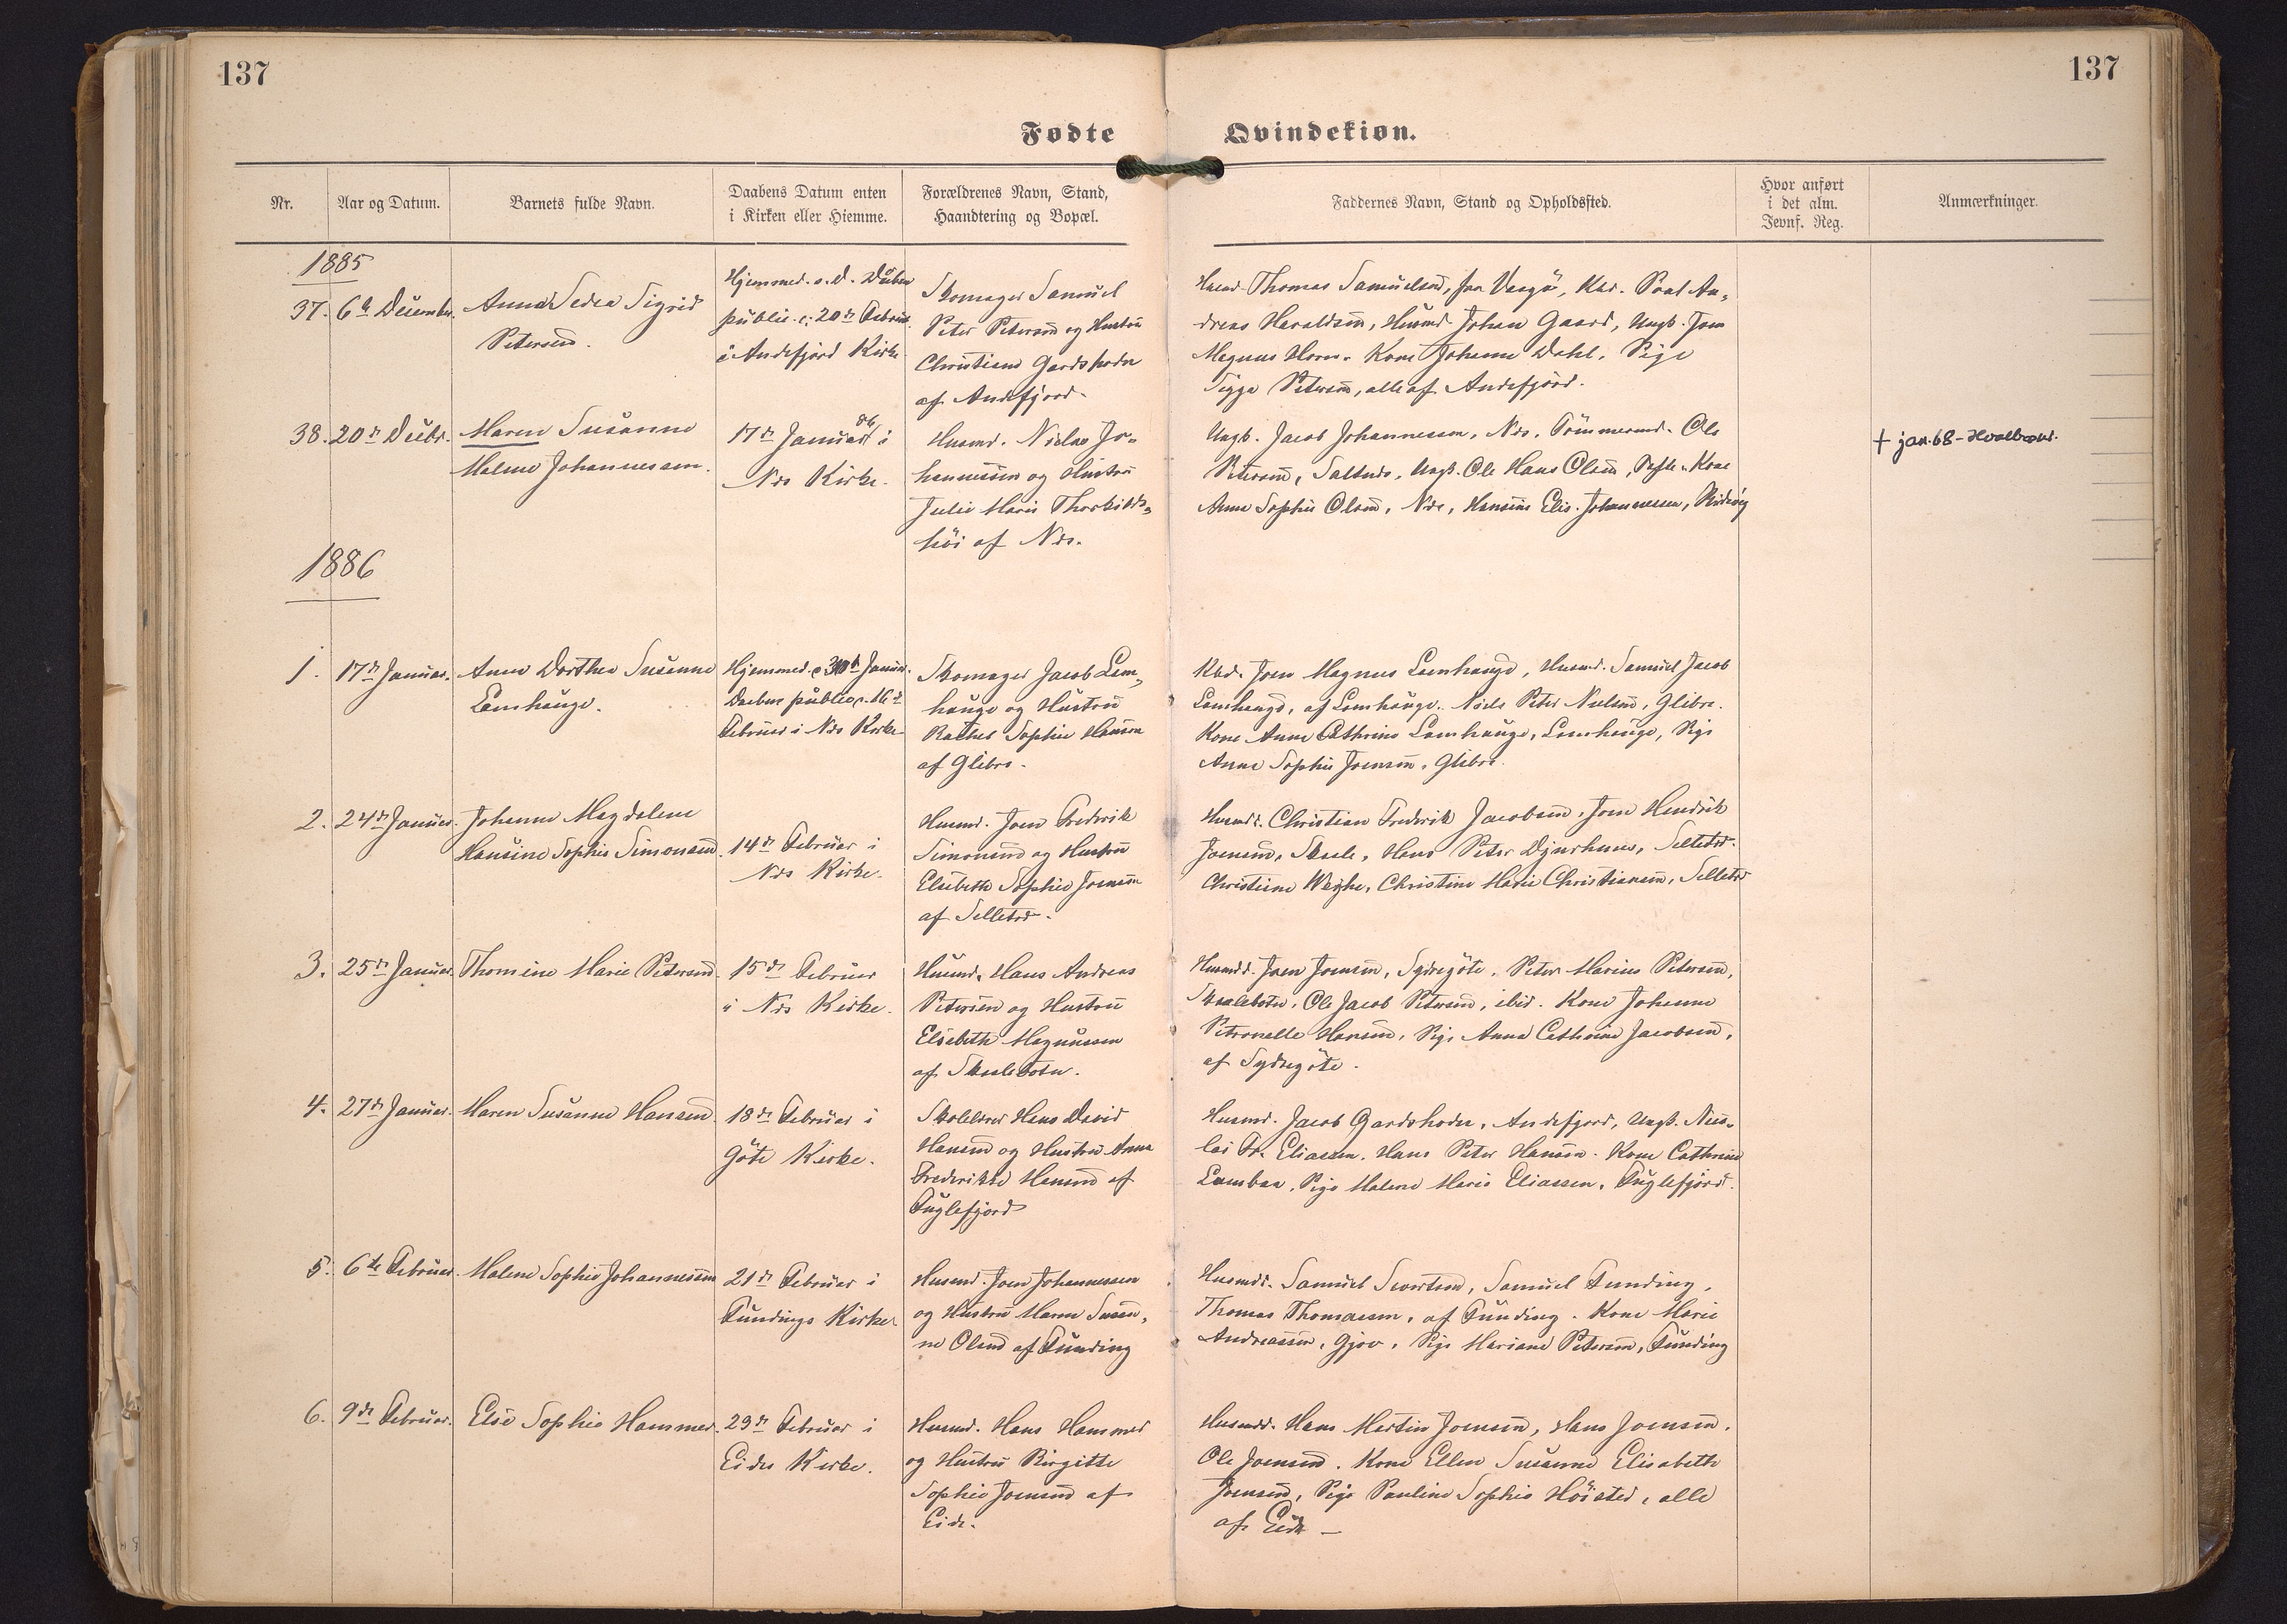 137
137
Fødte
Qvindekiøn.
Nr.
Aar og Datum.
Barnets fulde Navn.
Daabens Datum enten
i Kirken eller Hiemme.
Forældrenes Navn, Stand,
Haandtering og Bopæl.
Faddernes Navn, Stand og Opholdssted.
Hvor anført
i det alm.
Jevnf. Reg.
Anmærkninger.
1885
37.
Anna Sigrid
Petersen.
Hjemmed.
public. 20de
i Andefjord Kirke
Skomager Samuel
Peter Petersen og Hustru
Christiane
af Andefjord.
Thomas Samuelsen, Poul An-
dreas Haraldsen, Husmd. Johan Gaard, Ungk. Joen
Magnus Kone Johanne Dahl, Pige
Sigga Petersen, alle af Andefjord.
38. 20de Decbr.
Maren Susanne
Malene Johannesen.
17de Januar 86 i
Nes Kirke.
Husmd. Niclas Jo-
hannesen og Hustru
Julie Marie Thorkilds-
høi af Nes.
Ungk. Jacob Johannesson, Nes, Tømmermd. Ole
Petersen, Saltnes, Ungk. Ole Hans Olsen, Kone
Anne Sophie Olsen, Nes, Hansine Elis. Johannessen,
+ jan. 68 -
1886
1. 17de Januar.
Anne Dorthea Susanne
Lamhauge.
Hjemmed. Januar.
Daaben public. 16de
Februar i Nes Kirke
Skomager Jacob Lam-
hauge og Hustru
Rachel Sophie Hansen
af Glibre.
Kbd. Joen Magnus Lamhauge, Husmd. Samuel Jacob
Lamhauge, af Lamhauge. Niels Peter Nielsen, Glibre.
Kone Anne Cathrine Lamhauge, Lamhauge, Pige
Anne Sophie Joensen, Glibre.
2. 24de Januar.
Johanne Magdalene
Hansine Sophie Simonsen.
14de Februar i
Nes Kirke.
Husmd. Joen Frederik
Simonsen og Hustru
Elsebeth Sophie Joensen
af Selletræ.
Husmd. Christian Frederik Jacobsen, Joen Hendrik
Joensen, Skaale, Hans Peter Djurhuus, Selletræ.
Christiane Weyhe, Christine Marie Christiansen, Selletræ
3. 25de Januar.
Thomine Marie Petersen.
15de Februar
i Nes Kirke.
Husmd. Hans Andreas
Petersen og Hustru
Elsebeth Magnussen
af Skaalebotn.
Husmdd. Joen Joensen, Sydregøte, Peter Marius Petersen,
Skaalebotn, Ole Jacob Petersen, ibid. Kone Johanne
Petronelle Hansen, Pige Anna Cathrine Jacobsen,
af Sydregøte.
4. 27de Januar.
Maren Susanne Hansen.
18de Februar i
Gøte Kirke.
Skolelærer Hans David
Hansen og Hustru Anna
Frederikke Hansen af
Fuglefjord
Husmd. Jacob Gardshodn, Andefjord, Ungk. Nico-
lai Fr. Eliassen, Hans Peter Hansen. Kone Cathrine
Lambaa, Pige Malene Marie Eliassen, Fuglefjord.
5. 6te Februar.
Malene Sophie Johannessen
21de Februar i
Fundings Kirke
Husmd. Joen Johannessen
og Hustru Maren Susan-
ne Olsen af Funding
Husmdd. Samuel Sivertsen, Samuel Funding,
Thomas Thomassen, af Funding. Kone Marie
Andreassen, Gjov, Pige Mariane Petersen, Funding
6. 9de Februar.
Else Sophie Hammer.
Februar i
Eides Kirke.
Husmd. Hans Hammer
og Hustru Birgitte
Sophie Joensen af
Eide.
Husmdd. Hans Martin Joensen, Hans Joensen,
Ole Joensen. Kone Ellen Susanne Elisabeth
Joensen, Pige Pauline Sophie Høisted, alle
af Eide